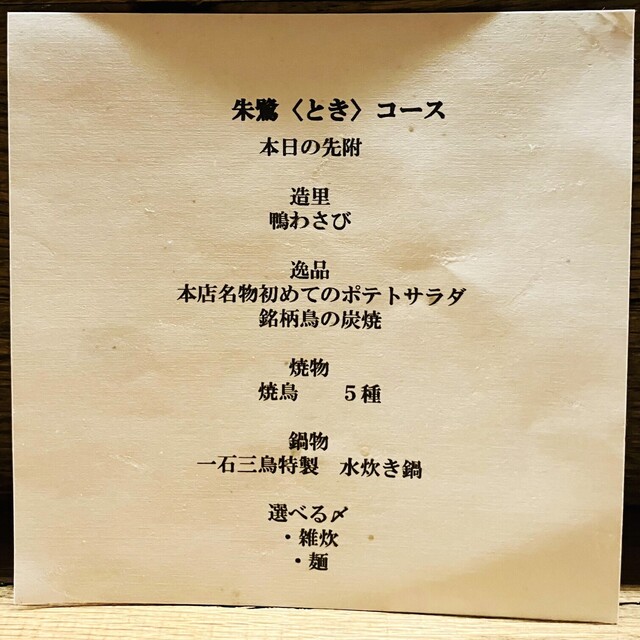 朱鷺〈とき〉コース
本日の先附
造里
鴨わさび
逸品
本店名物初めてのポテトサラダ
銘柄鳥の炭焼
焼物
焼鳥　　５種
鍋物
一石三鳥特製　水炊き鍋
選べる〆
・雑炊
・麺